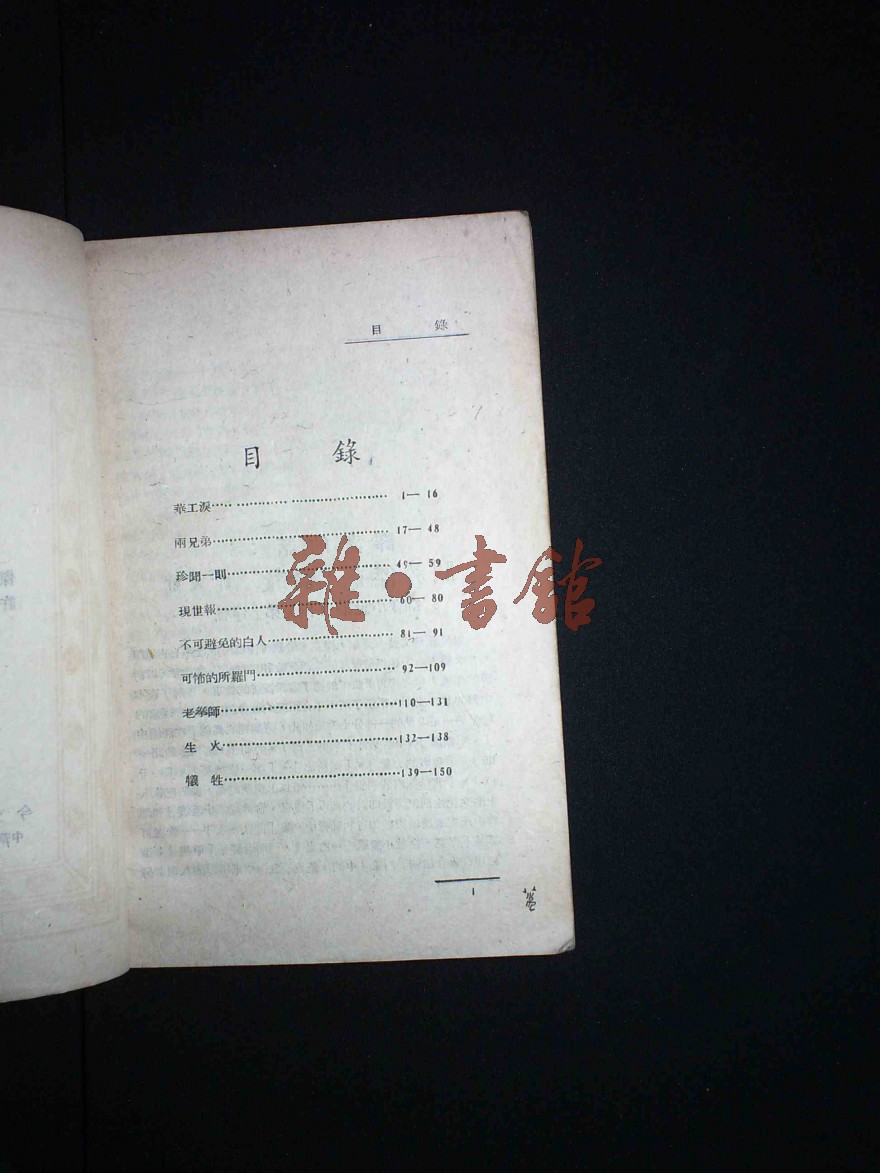 目 錄
目 錄
華工淚………………………… 1— 16
兩兄弟………………………… 17— 48
珍聞一則………………………… 49— 59
現世報………………………… 60— 80
不可避免的白人………………… 81— 91
可怖的所羅門………………… 92—109
老拳師…………………………110—131
生 火…………………………132—138
犧 牲…………………………139—150
雜·書館
1